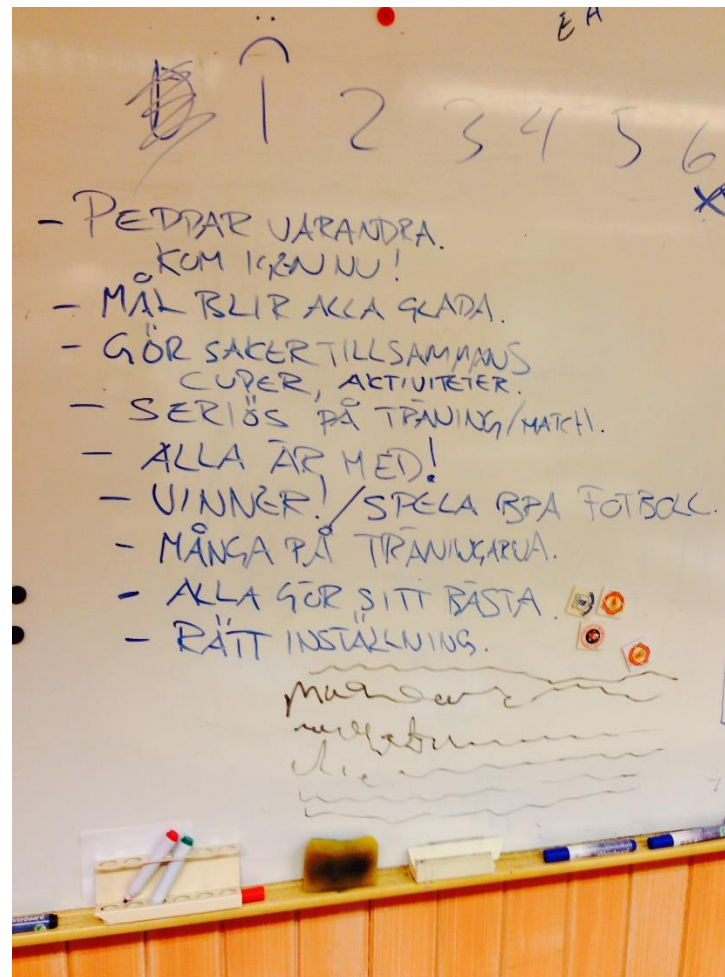 E A
1 2 3 4 5 6
X
- PEPPAR VARANDRA.
KOM IGEN NU!
- MÅL BLIR ALLA GLADA.
- GÖR SAKER TILLSAMMANS
CUPER, AKTIVITETER.
- SERIÖS PÅ TRÄNING/MATCH.
- ALLA ÄR MED!
- VINNER! / SPELA BRA FOTBOLL.
- MÅNGA PÅ TRÄNINGARNA.
- ALLA GÖR SITT BÄSTA.
- RÄTT INSTÄLLNING.